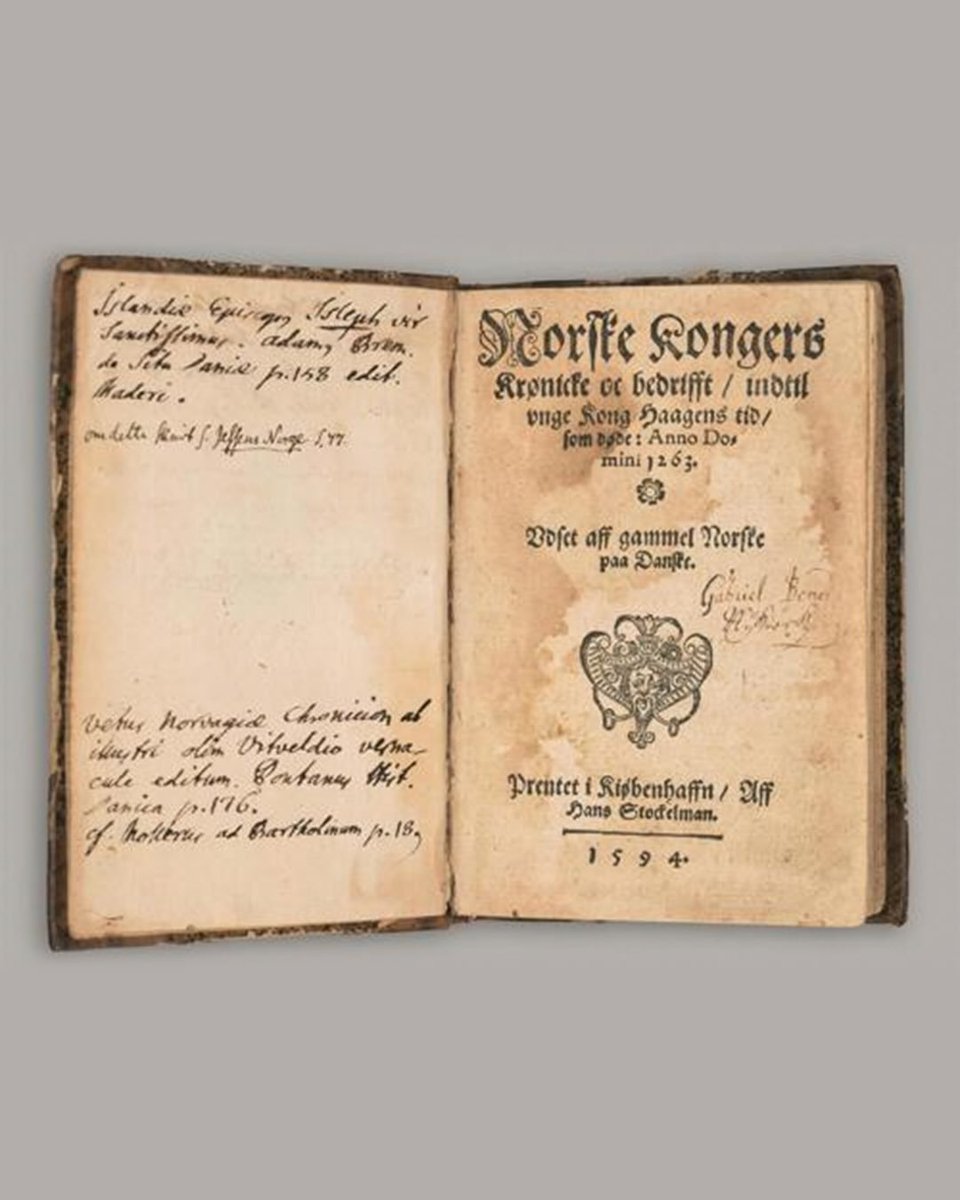 Islandiæ Episcopus Isleph vir
Sanctissimus. adamus Brem.
de Situ Daniæ p.158 edit.
Maderi.
om dette Skrift s. Jessens Norge S.77.
vetus Norvagiæ Chronicion ab
illustri olim Vitveldio verna-
cule editum. Pontanus Hist.
Danica p.176.
cf. Mollerus ad Bartholinum p.18
Norske Kongers
Krønicke oc bedrifft / indtil
vnge Kong Haagens tid /
som døde: Anno Do-
mini 1263.
Vdset aff gammel Norske
paa Danske.
Gabriel
Prentet i Kiøbenhaffn / Aff
Hans Stockelman.
1594.